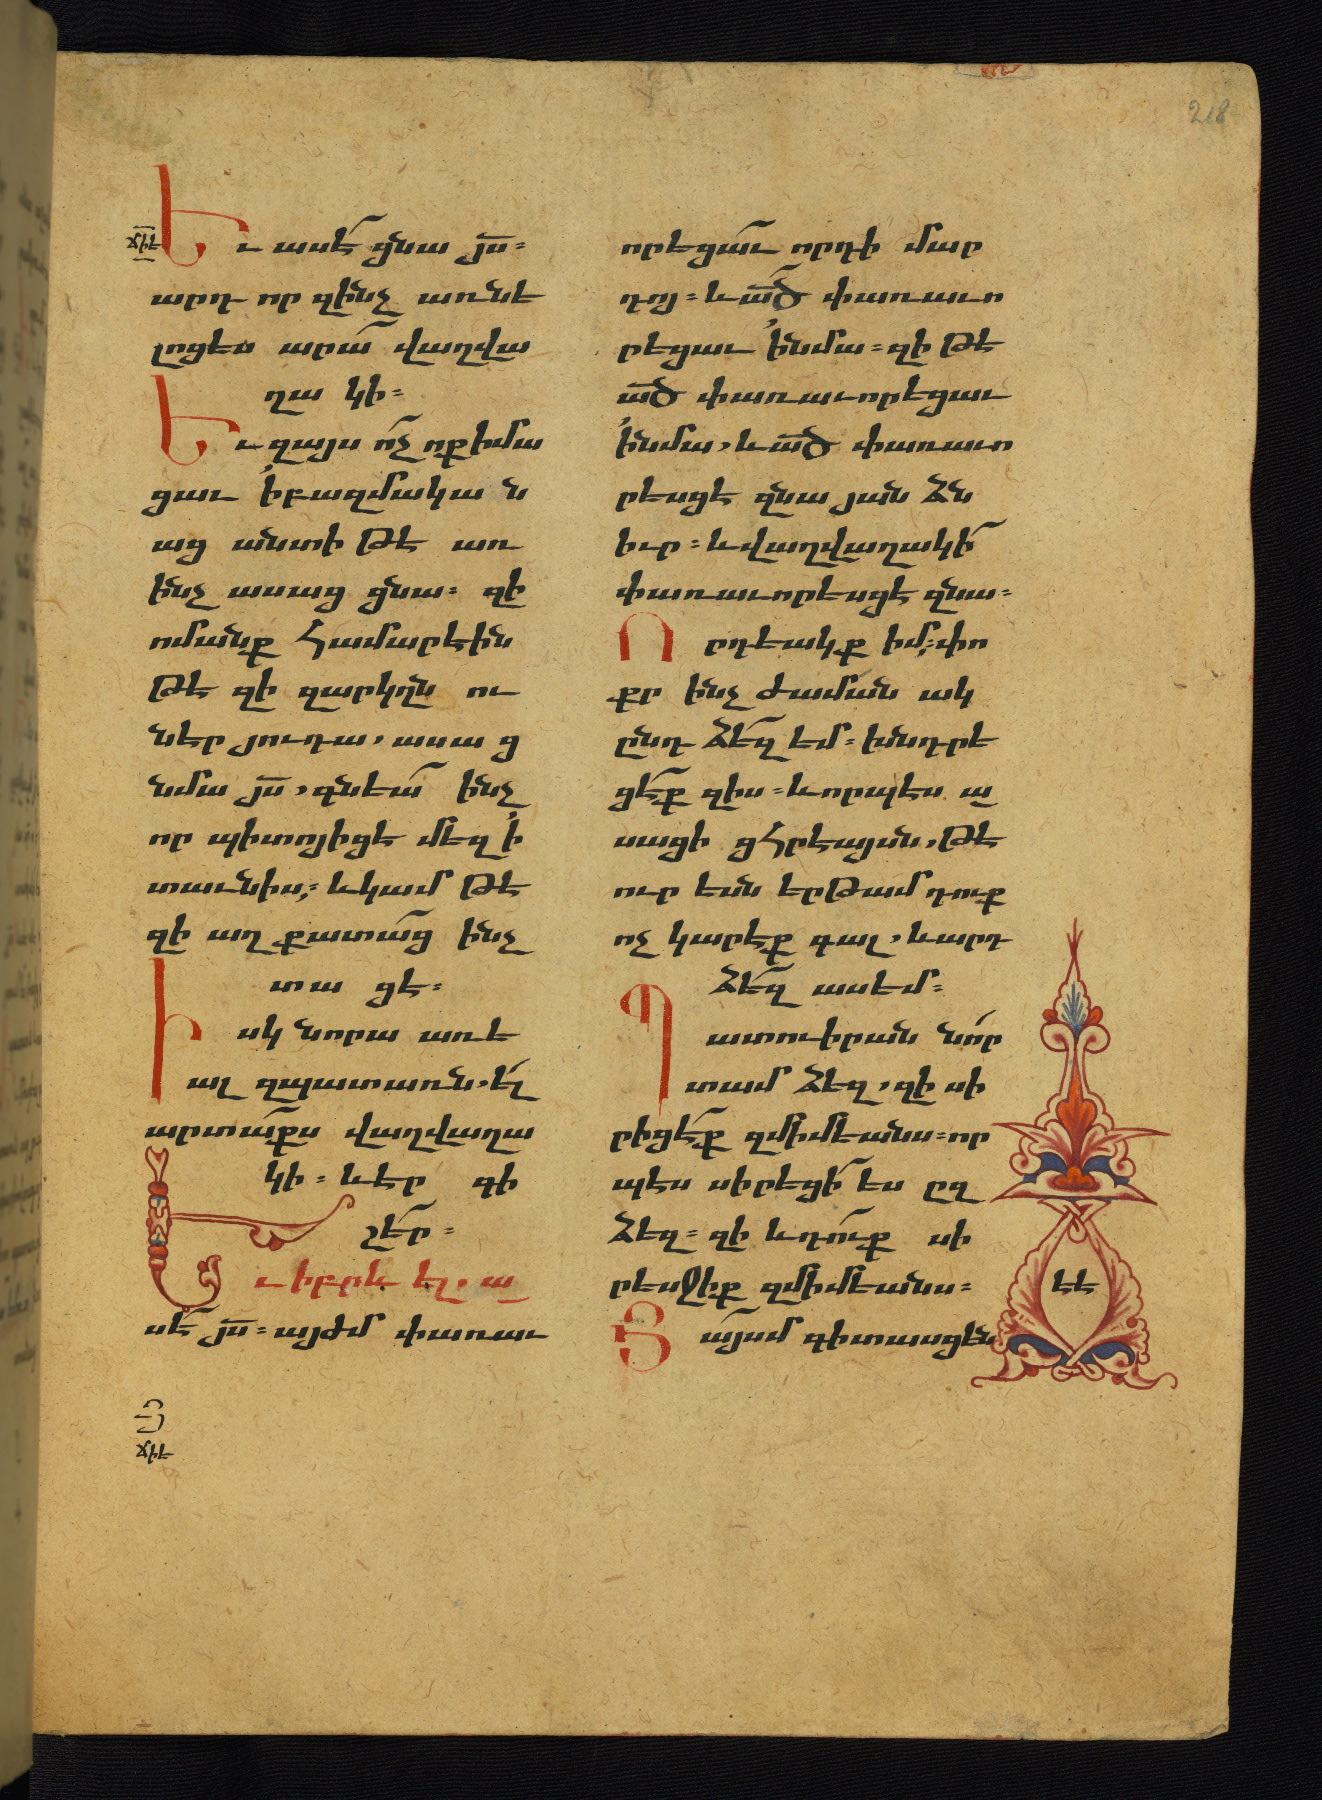 218
ճիէ
Եւ ասէ ցնա յս։
արդ որ զինչ առնե
լոցես արա վաղվա
ղա կի։
Եւ զայս ոչ ոք իմա
ցաւ ՚ի բազմակա ն
աց անտի թէ առ
ինչ ասաց ցնա։ զի
ոմանք համարէին
թէ զի զարկղն ու
նէր յուդա, ասա ց
նմա յս, գնեա ինչ
որ պիտոյիցէ մեզ ՚ի
տաւնիս,։ և կամ թէ
զի աղ քատաց ինչ
տա ցէ։
Իսկ նորա առե
ալ զպատառն, ել
արտաքս վաղվաղա
կի։ և էր գի
շեր։
Եւ իբրև ել. ա
սէ յս։ այժմ փառաւ
Յ
ճիէ
որեցաւ որդի մար
դոյ։ և ած փառաւո
րեցաւ ՚ի նմա։ զի թէ
ած փառաւորեցաւ
՚ի նմա, և ած փառաւո
րեսցէ զնա յան ձն
իւր։ և վաղվաղակի
փառաւորեսցէ զնա։
Որդեակք իմ,։ փո
քր ինչ ժաման ակ
ընդ ձեզ եմ։ խնդրե
ցէք զիս։ և որպէս ա
սացի ց հրէայսն, թէ
ուր ես երթամ դուք
ոչ կարէք գալ, և արդ
ձեզ ասեմ։
Պատուիրան նոր
տամ ձեզ, զի սի
րիցէք զմիմեանս։ որ
պէս սիրեցի ես ըզ
ձեզ։ զի և դուք սի
րեսջիք զմիմեանս։
Յայսմ գիտասցեն
ԷԷ